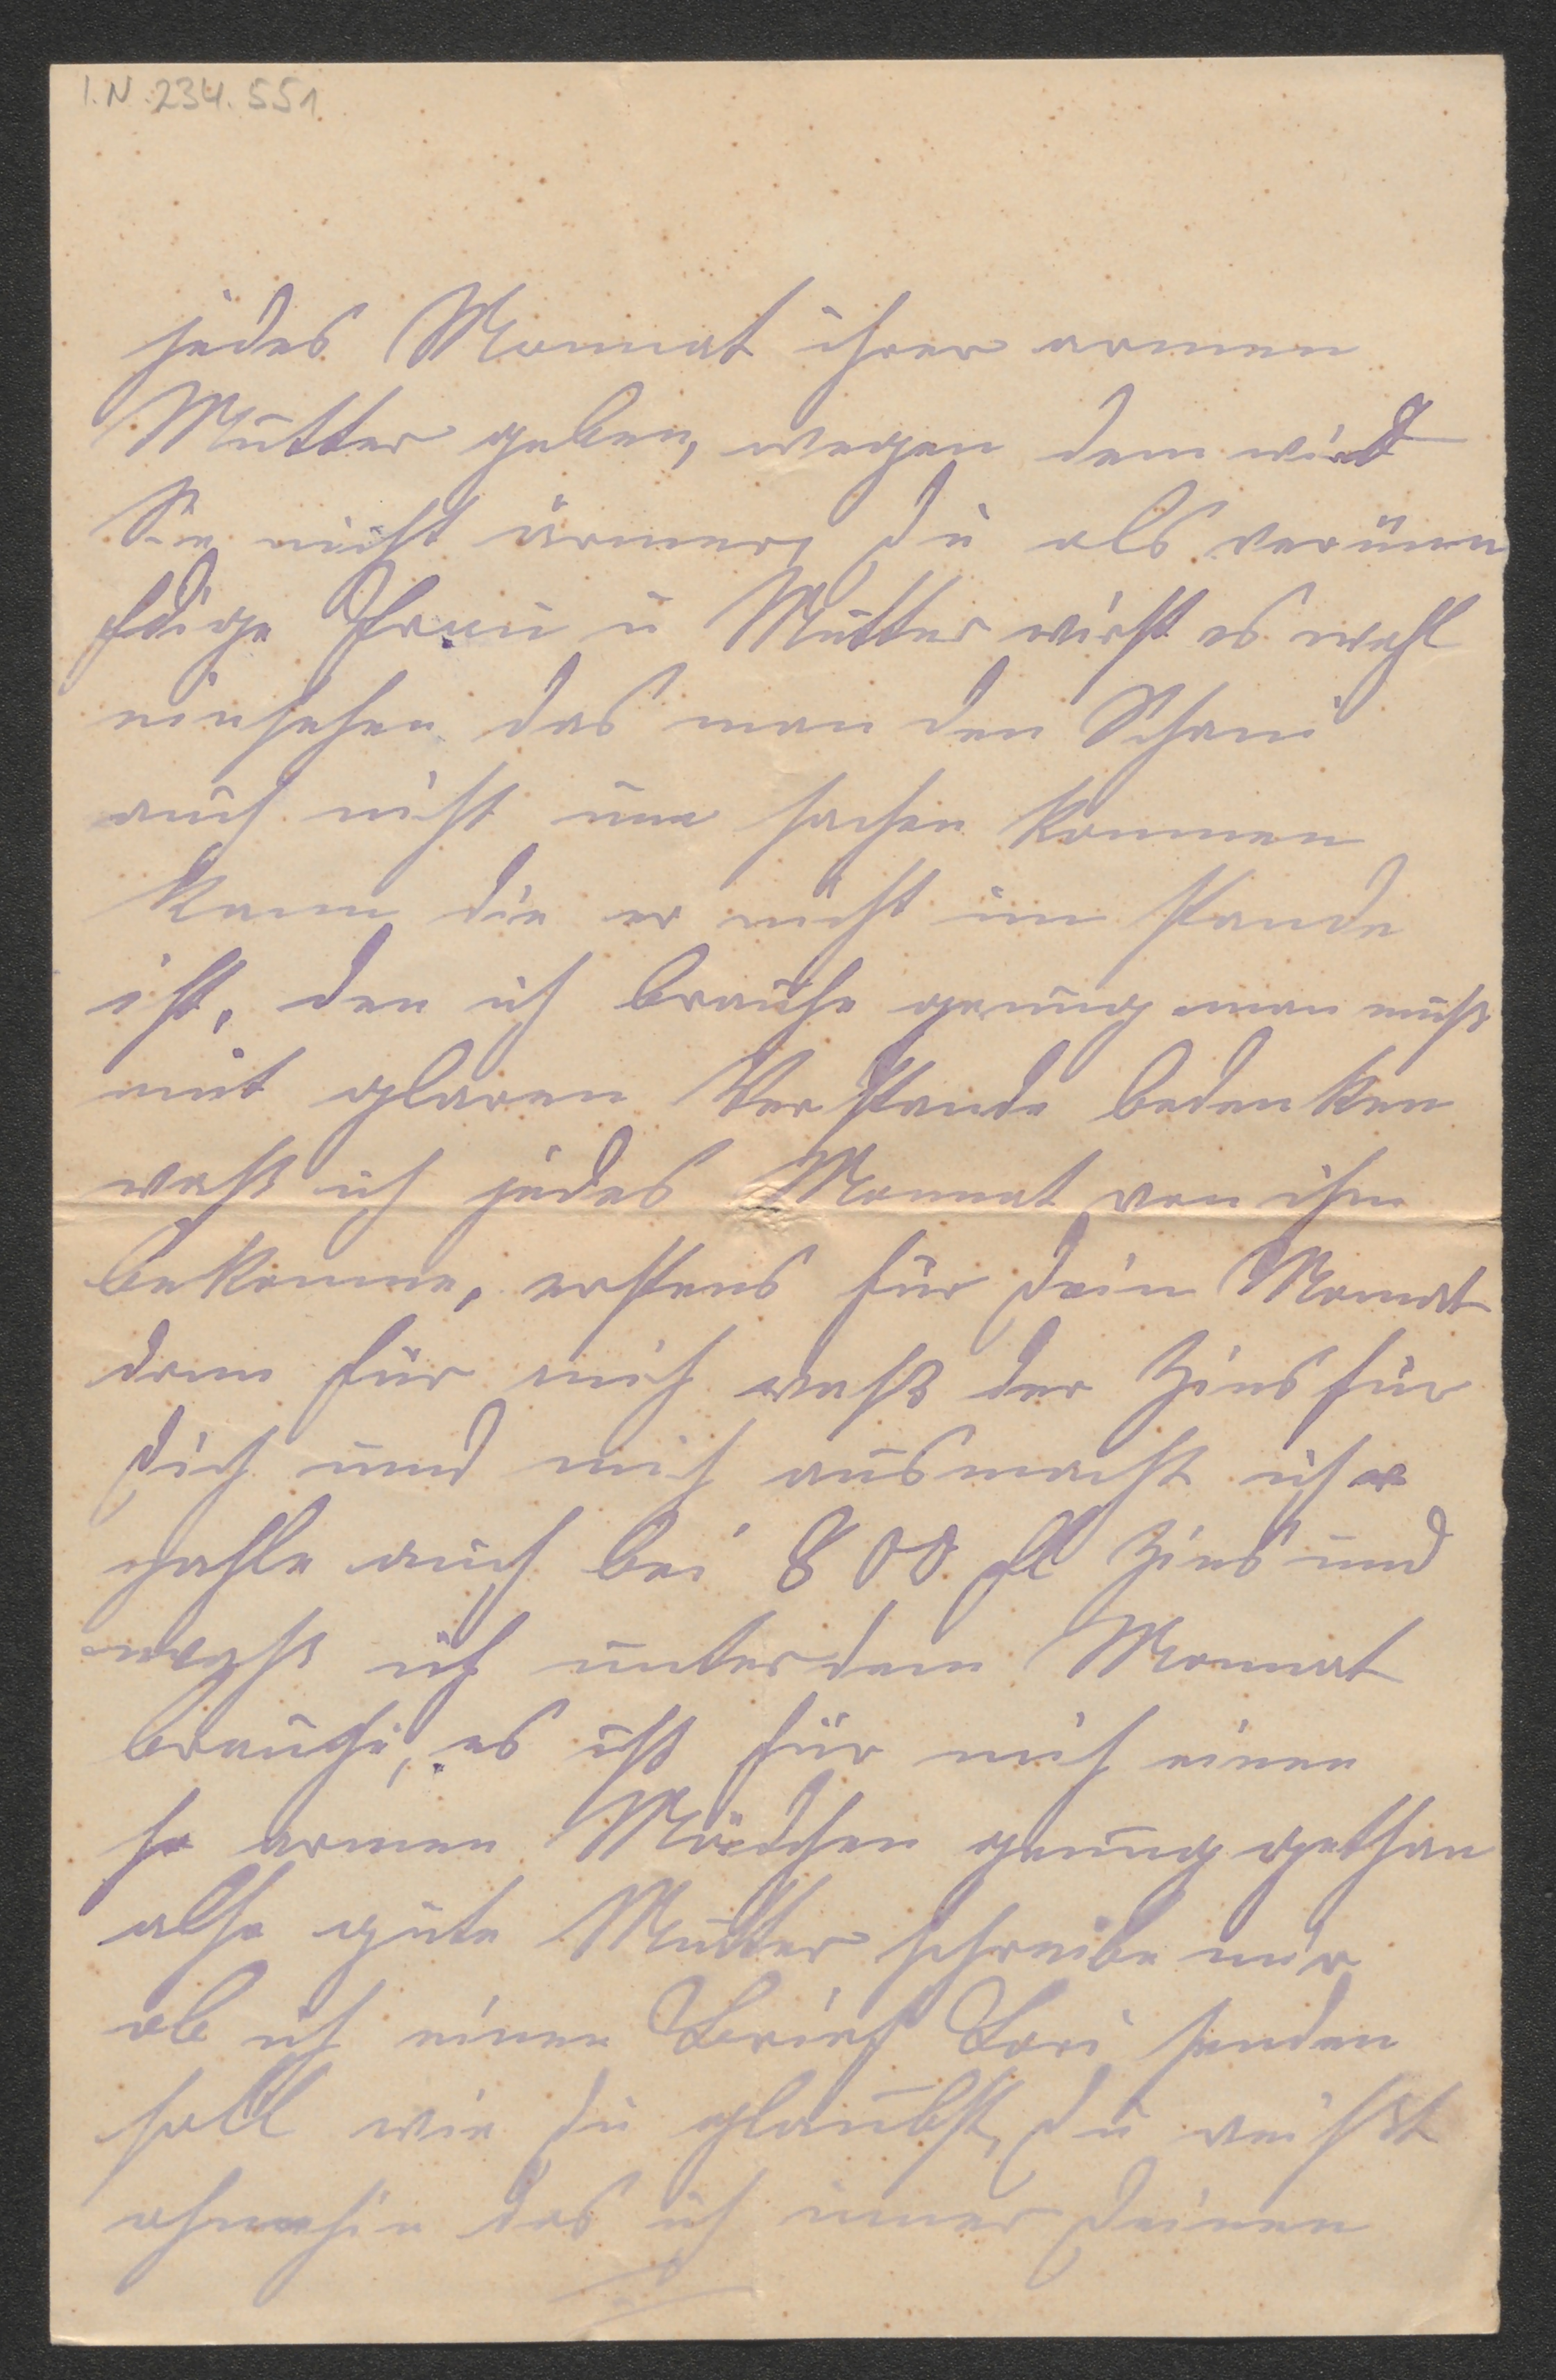 I.N. 234.551
jedes Monnat ihrer armen
Mutter geben, wegen dem wird
Sie nicht ärmer, Du als verünn
ftige Frau u Mutter wirst es wohl
einsehen das man den Schani
auch nicht um sachen kommen
kann die er nicht im stande
ist, den ich brauche genug man muß
mit glaren Verstande bedenken
waß ich jedes Monnat von ihm
bekomme, erstens für Dein Monnat
dann für mich waß der Zins für
Dich und mich ausmacht ich
zahle auch bei 800 fl Zins und
waß ich unter dem Monnat
brauche, es ist für mich einen
so armen Mädchen genug gethan
also gute Mutter schreibe mir
ob ich einen Brief Lori senden
soll wie Du glaubst, Du weißt
ohnehin das ich immer Deinen